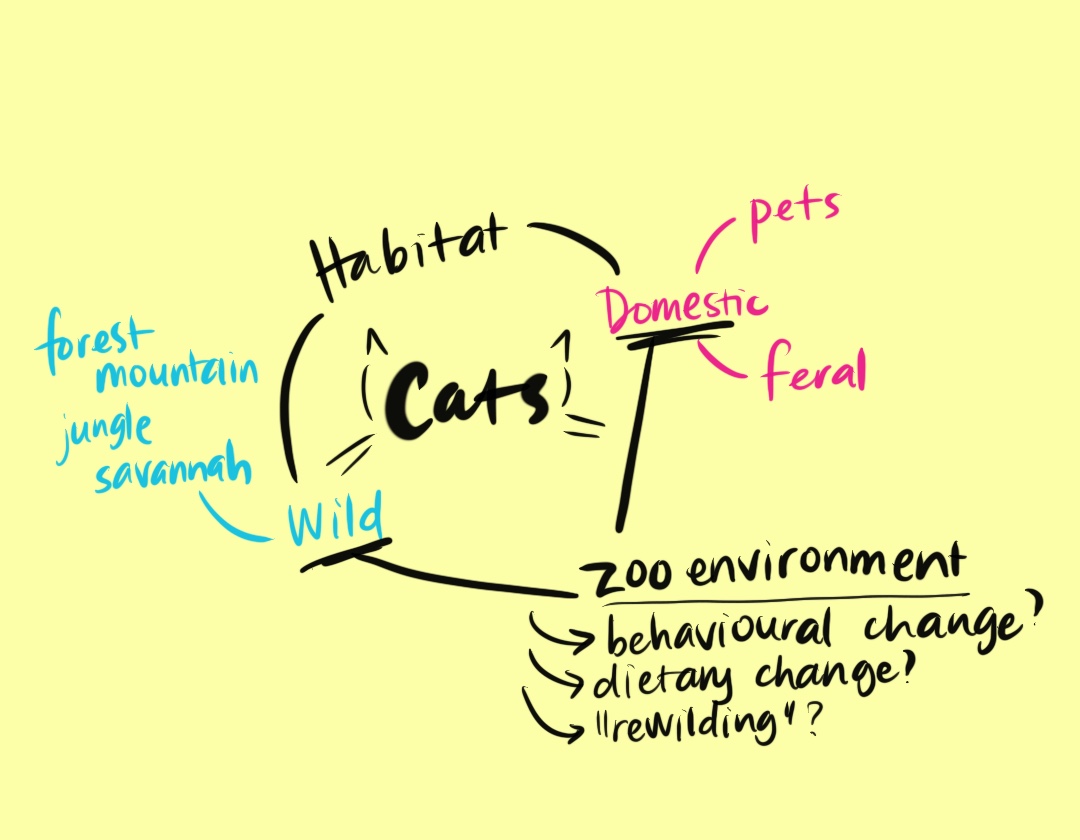 Habitat
pets
Domestic
feral
Cats
forest
mountain
jungle
savannah
Wild
Zoo environment
behavioural change?
dietary change?
"rewilding"?